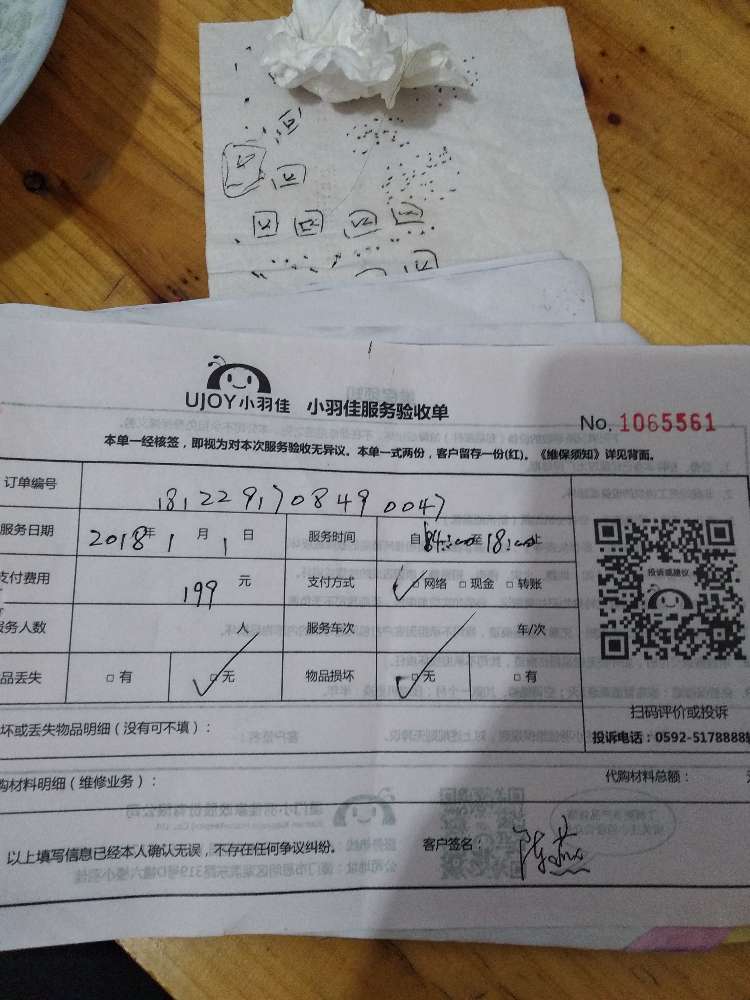 UJOY小羽佳 小羽佳服务验收单
No. 1065561
本单一经核签，即视为对本次服务验收无异议。本单一式两份，客户留存一份(红)。《维保须知》详见背面。
订单编号 1812291708490047
服务日期 2018年1月1日 服务时间 自 至18:00止
支付费用 199元 支付方式 □网络 □现金 □转账
投诉或建议
务人数 人 服务车次 车/次
品丢失 □有 □无 物品损坏 □无 □有
扫码评价或投诉
坏或丢失物品明细（没有可不填）：
投诉电话：0592-5178888
购材料明细（维修业务）：
代购材料总额：
以上填写信息已经本人确认无误，不存在任何争议纠纷。 客户签名：